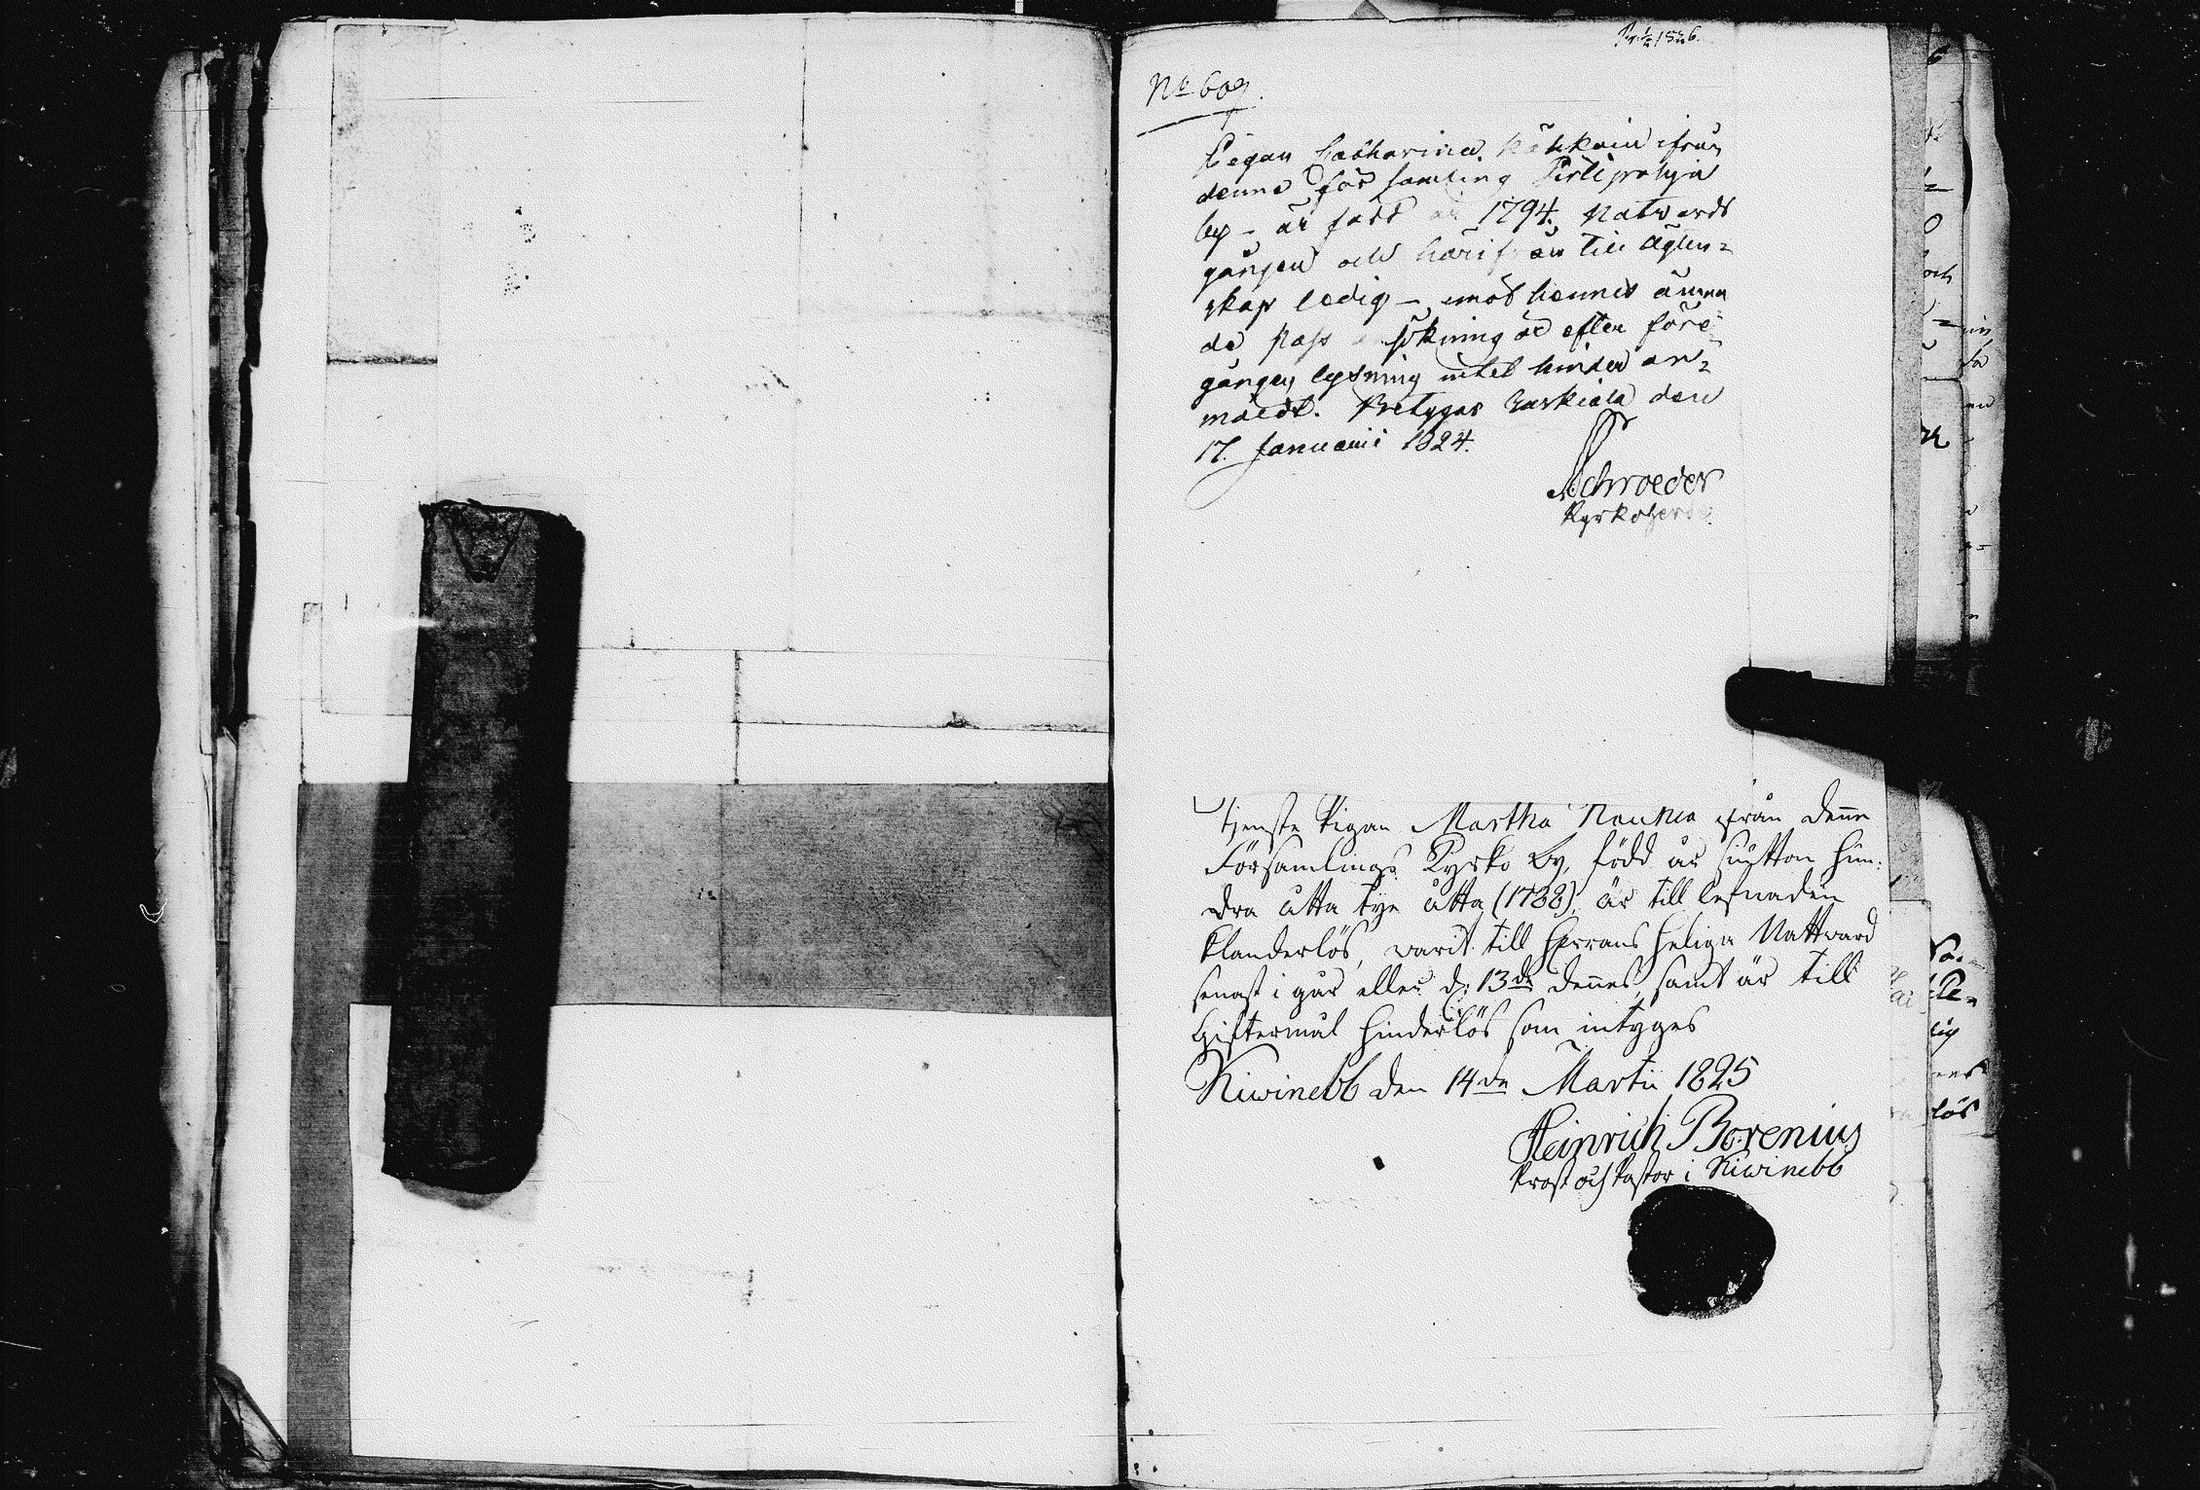 No 609.
Pigan Catharina Kähkoin ifrån
denna församling Pirtipohja
by - är född år 1794. Natwards
gången och härifrån till ägten=
skap ledig - emot hennes ämna
de pass sökning är efter före
gången lysning intet hinder an=
mäldt. Betygar Ruskiala den
17. Januarii 1824.
Schroeder
Kyrkoherde.
Tjenste Pigan Martha Naukas från denne
Församlings Kyrko by, född år siutton hun:
dra åtta tye åtta (1788), är till lefnaden
klanderlös, warit till Herrans heliga Nattward
senast i går eller d: 13de dennes, samt är till
Giftermål hinderlös som intyges
Kiwinebb den 14de Martii 1825
Heinrich Borenius
Prost och Pastor i Kiwinebb